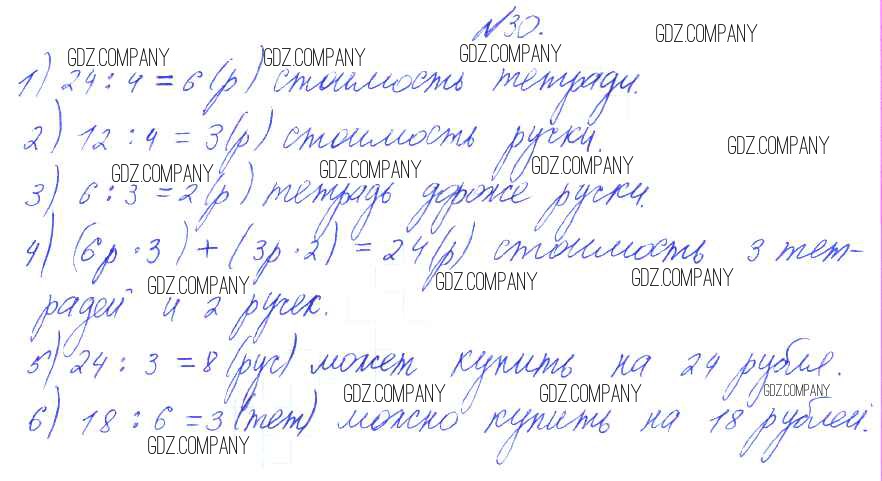 №30.
GDZ.COMPANY GDZ.COMPANY GDZ.COMPANY GDZ.COMPANY
1) 24 : 4 = 6 (р) стоимость тетради.
2) 12 : 4 = 3 (р) стоимость ручки.
GDZ.COMPANY
GDZ.COMPANY GDZ.COMPANY GDZ.COMPANY
3) 6 : 3 = 2 (р) тетрадь дороже ручки.
4) (6р · 3) + (3р · 2) = 24 (р) стоимость 3 тет-
GDZ.COMPANY GDZ.COMPANY GDZ.COMPANY
радей и 2 ручек.
5) 24 : 3 = 8 (руc) может купить на 24 рубля.
GDZ.COMPANY GDZ.COMPANY GDZ.COMPANY
6) 18 : 6 = 3 (тет) можно купить на 18 рублей.
GDZ.COMPANY